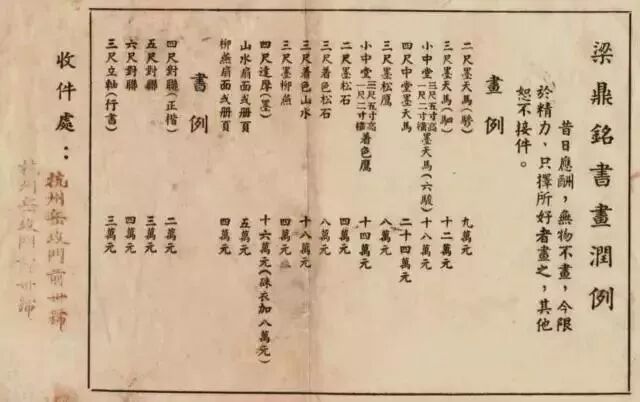 梁鼎銘書畫潤例
昔日應酬，無物不畫，今限
於精力，只擇所好者畫之，其他
恕不接件。
畫例
二尺墨天馬 九萬元
三尺墨天馬(駟) 十二萬元
小中堂三尺五寸高一尺二寸橫墨天馬(六駿) 十八萬元
四尺中堂墨天馬 二十四萬元
三尺墨松鷹 八萬元
小中堂三尺五寸高一尺二寸橫着色鷹 十四萬元
二尺墨松石 四萬元
三尺着色松石 八萬元
三尺着色山水 十八萬元
三尺墨柳燕 四萬元
四尺達摩(墨) 十六萬元(硃衣加八萬元)
山水扇面或册頁 五萬元
柳燕扇面或册頁 四萬元
書例
四尺對聯(正楷) 二萬元
五尺對聯 三萬元
六尺對聯 四萬元
三尺立軸(行書) 三萬元
收件處：
杭州 門前卅號
杭州 門